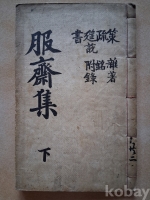 服齋集
下
策 雜著
疏 銘
筵說 附錄
書
kobay